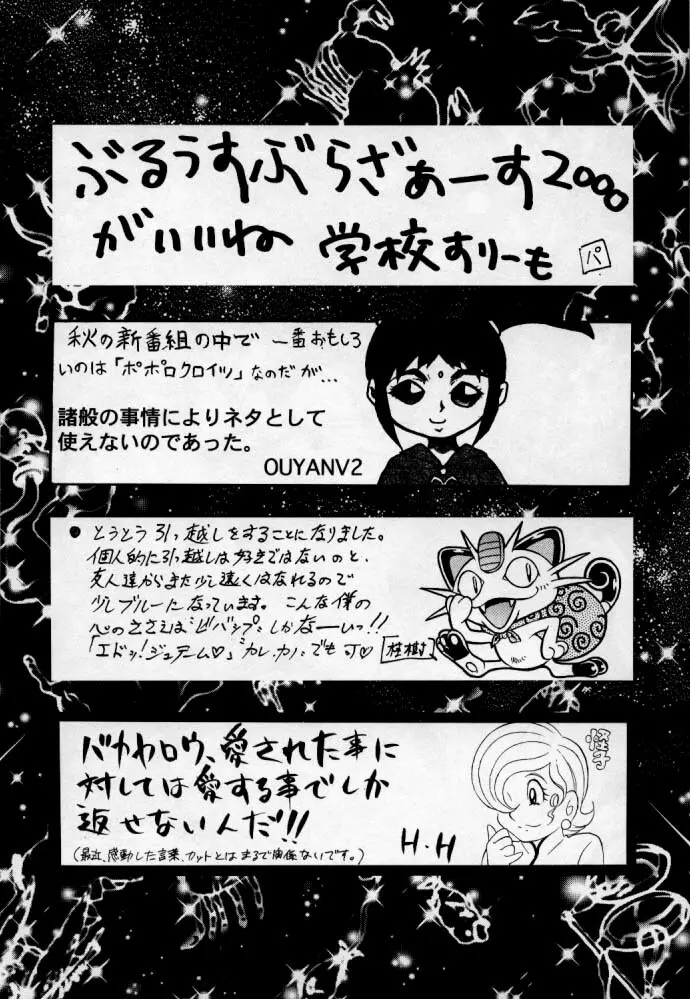 ぶるうすぶらざぁーす2000
がいいね 学校すりーも パ
秋の新番組の中で 一番おもしろ
いのは「ポポロクロイツ」なのだが…
諸般の事情によりネタとして
使えないのであった。
OUYANV2
● とうとう引っ越しをすることになりました。
個人的に引っ越しは好きではないのと、
友人達からまた少し遠くはなれるので
少しブルーになっています。こんな僕の
心のささえは"ビバップ"しかなーいっ!!
「エドッ!ジュテーム♡」"カレカノ"でも可♡ 桂樹
バカヤロウ、愛された事に
対しては愛する事でしか
返せないんだ!!
(最近、感動した言葉、カットとは まるで関係ないです。)
H.H
怪子